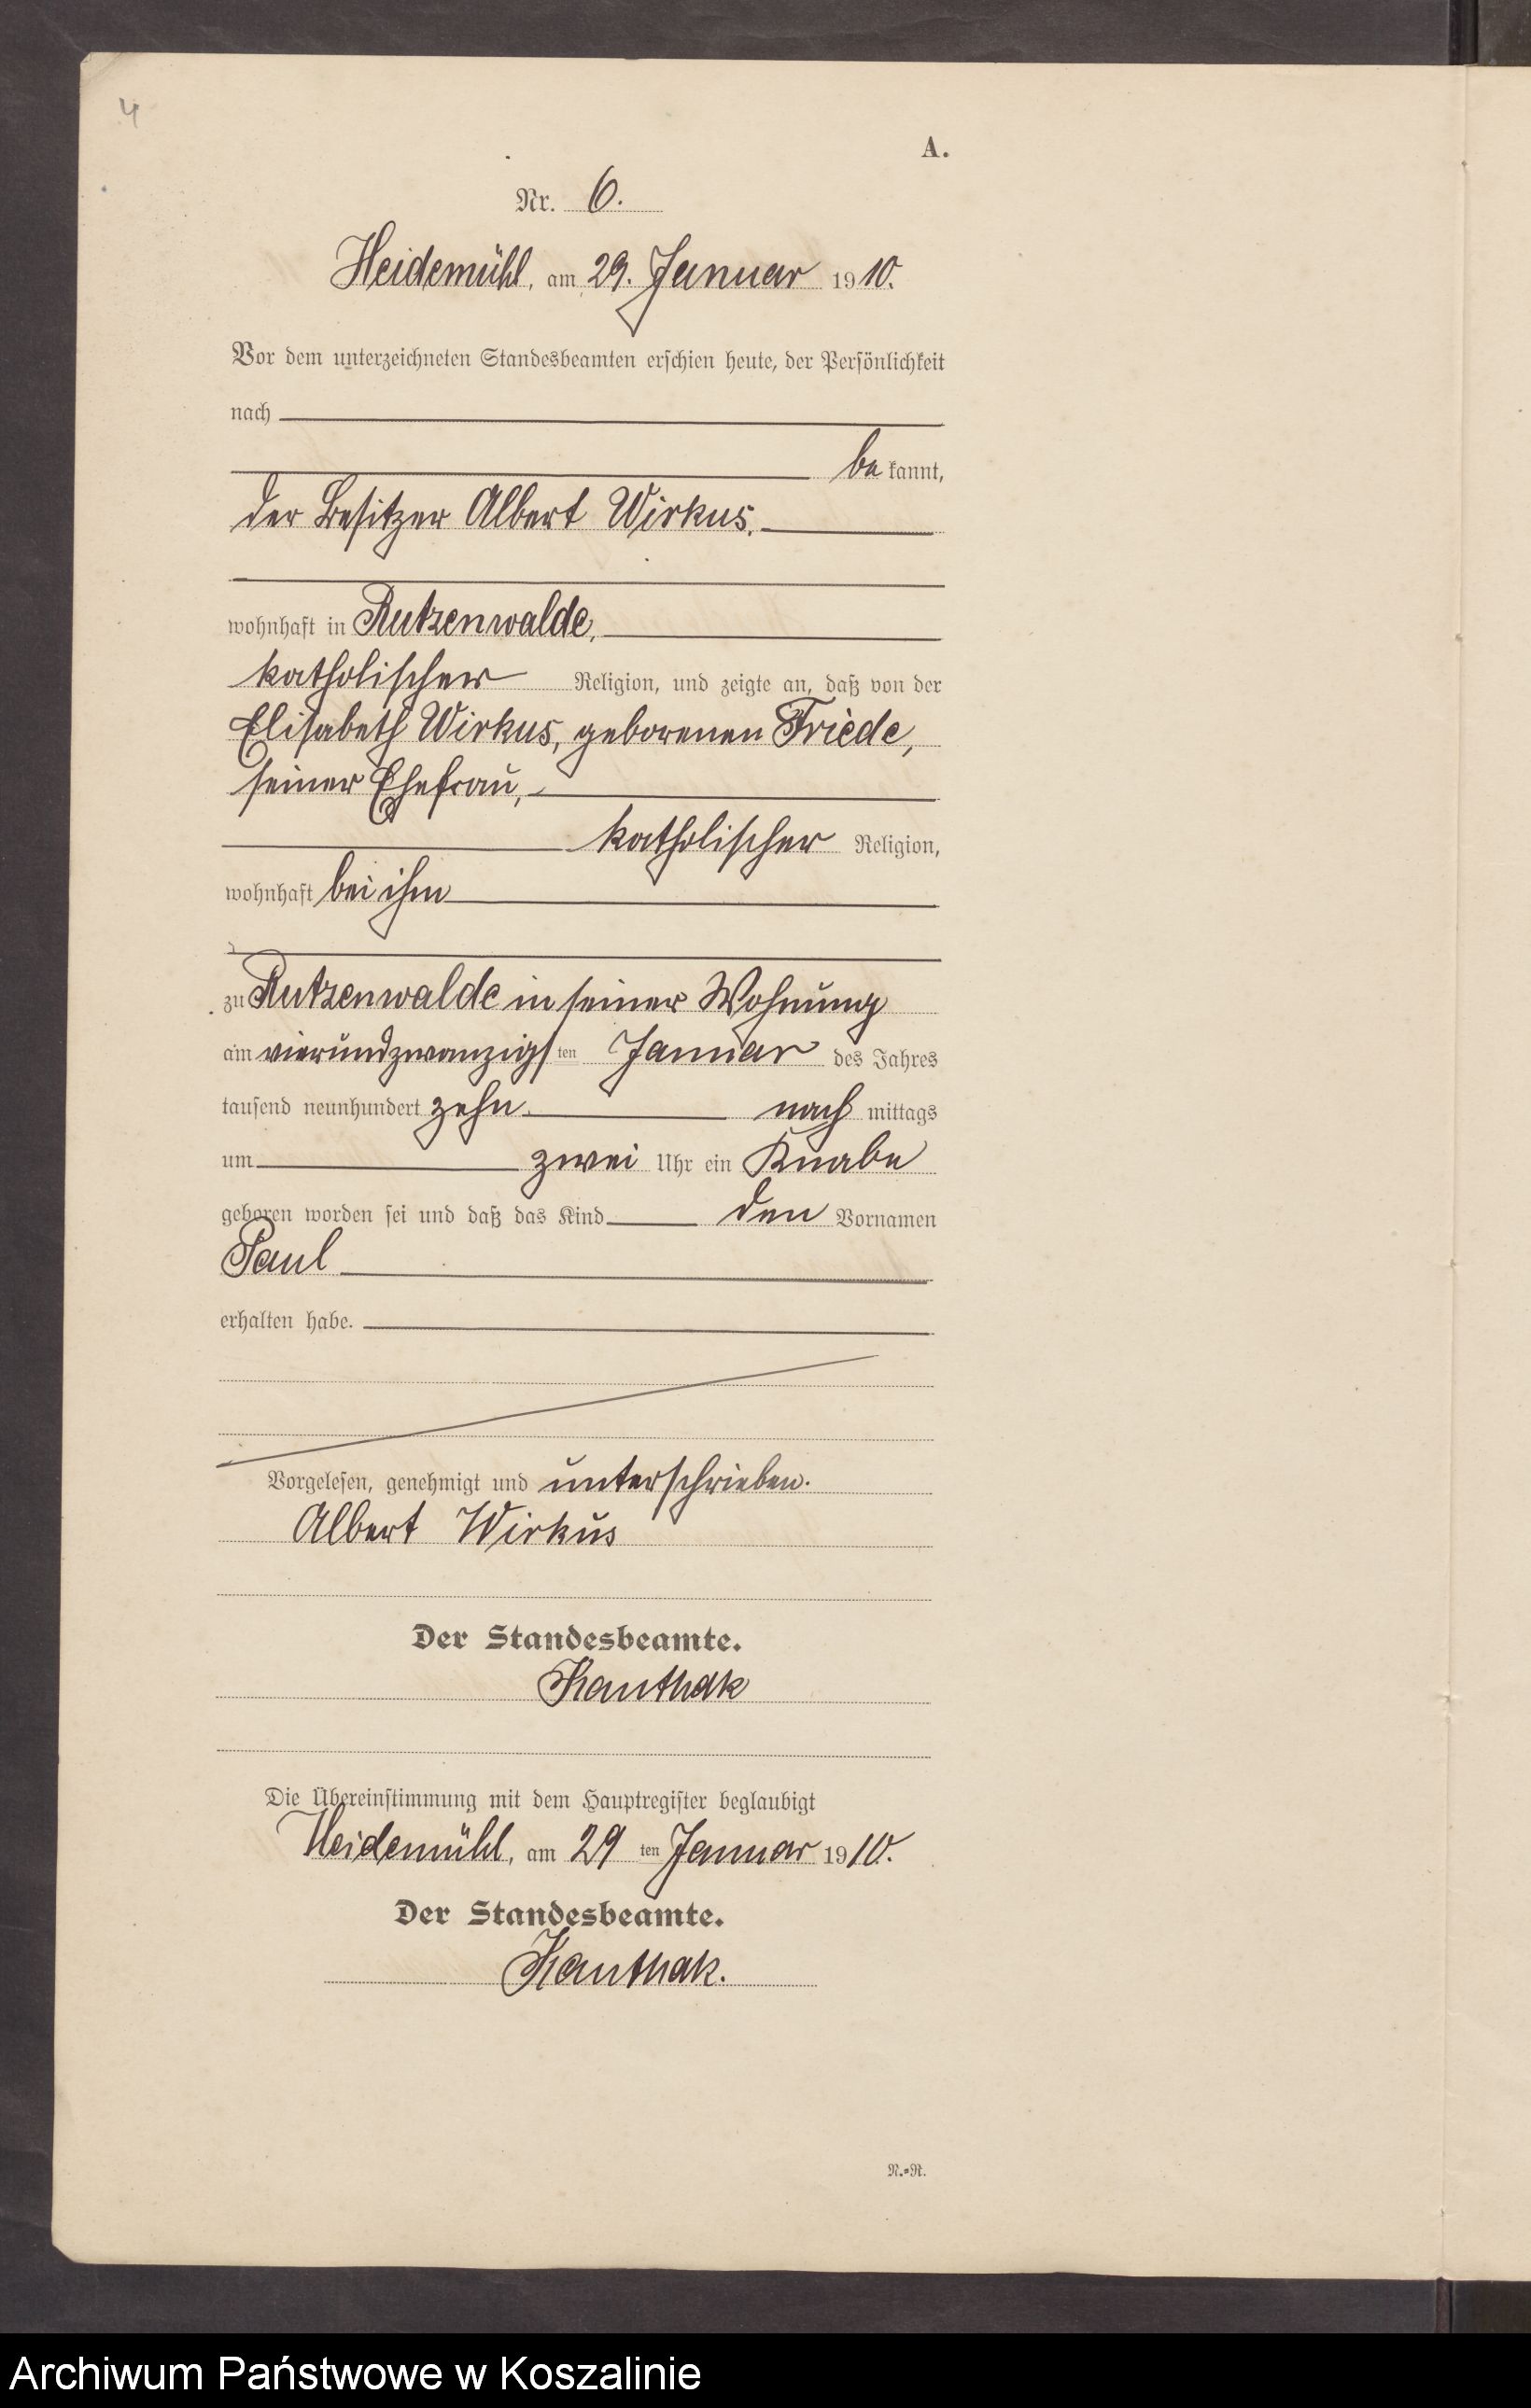 4
A.
Nr. 6.
Heidemühl, am 29. Januar 1910.
Vor dem unterzeichneten Standesbeamten erschien heute, der Persönlichkeit
nach
bekannt,
der Besitzer Albert Wirkus,
wohnhaft in Rutzenwalde,
katholischer Religion, und zeigte an, daß von der
Elisabeth Wirkus, geborenen Friede,
seiner Ehefrau,
katholischer Religion,
wohnhaft bei ihm
zu Rutzenwalde in seiner Wohnung
am vierundzwanzigsten Januar des Jahres
tausend neunhundert zehn nachmittags
um zwei Uhr ein Knabe
geboren worden sei und daß das Kind den Vornamen
Paul
erhalten habe.
Vorgelesen, genehmigt und unterschrieben.
Albert Wirkus
Der Standesbeamte.
Kanthak
Die Übereinstimmung mit dem Hauptregister beglaubigt
Heidemühl, am 29ten Januar 1910.
Der Standesbeamte.
Kanthak.
N.=R.
Archiwum Państwowe w Koszalinie